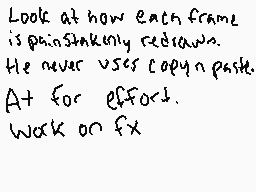 Look at how each frame
is painstakenly redrawn.
He never uses copy n paste.
A+ for effort.
Work on fx